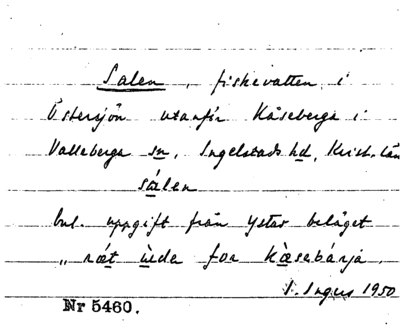 Salen, fiskevatten i
Östersjön utanför Kåseberga i
Valleberga sn, Ingelstads hd, Krist. län
sálen
Enl. uppgift från Ystad beläget
„ rǽt ùda for Kàsabárja.
S. Ingers 1950
Nr 5460.